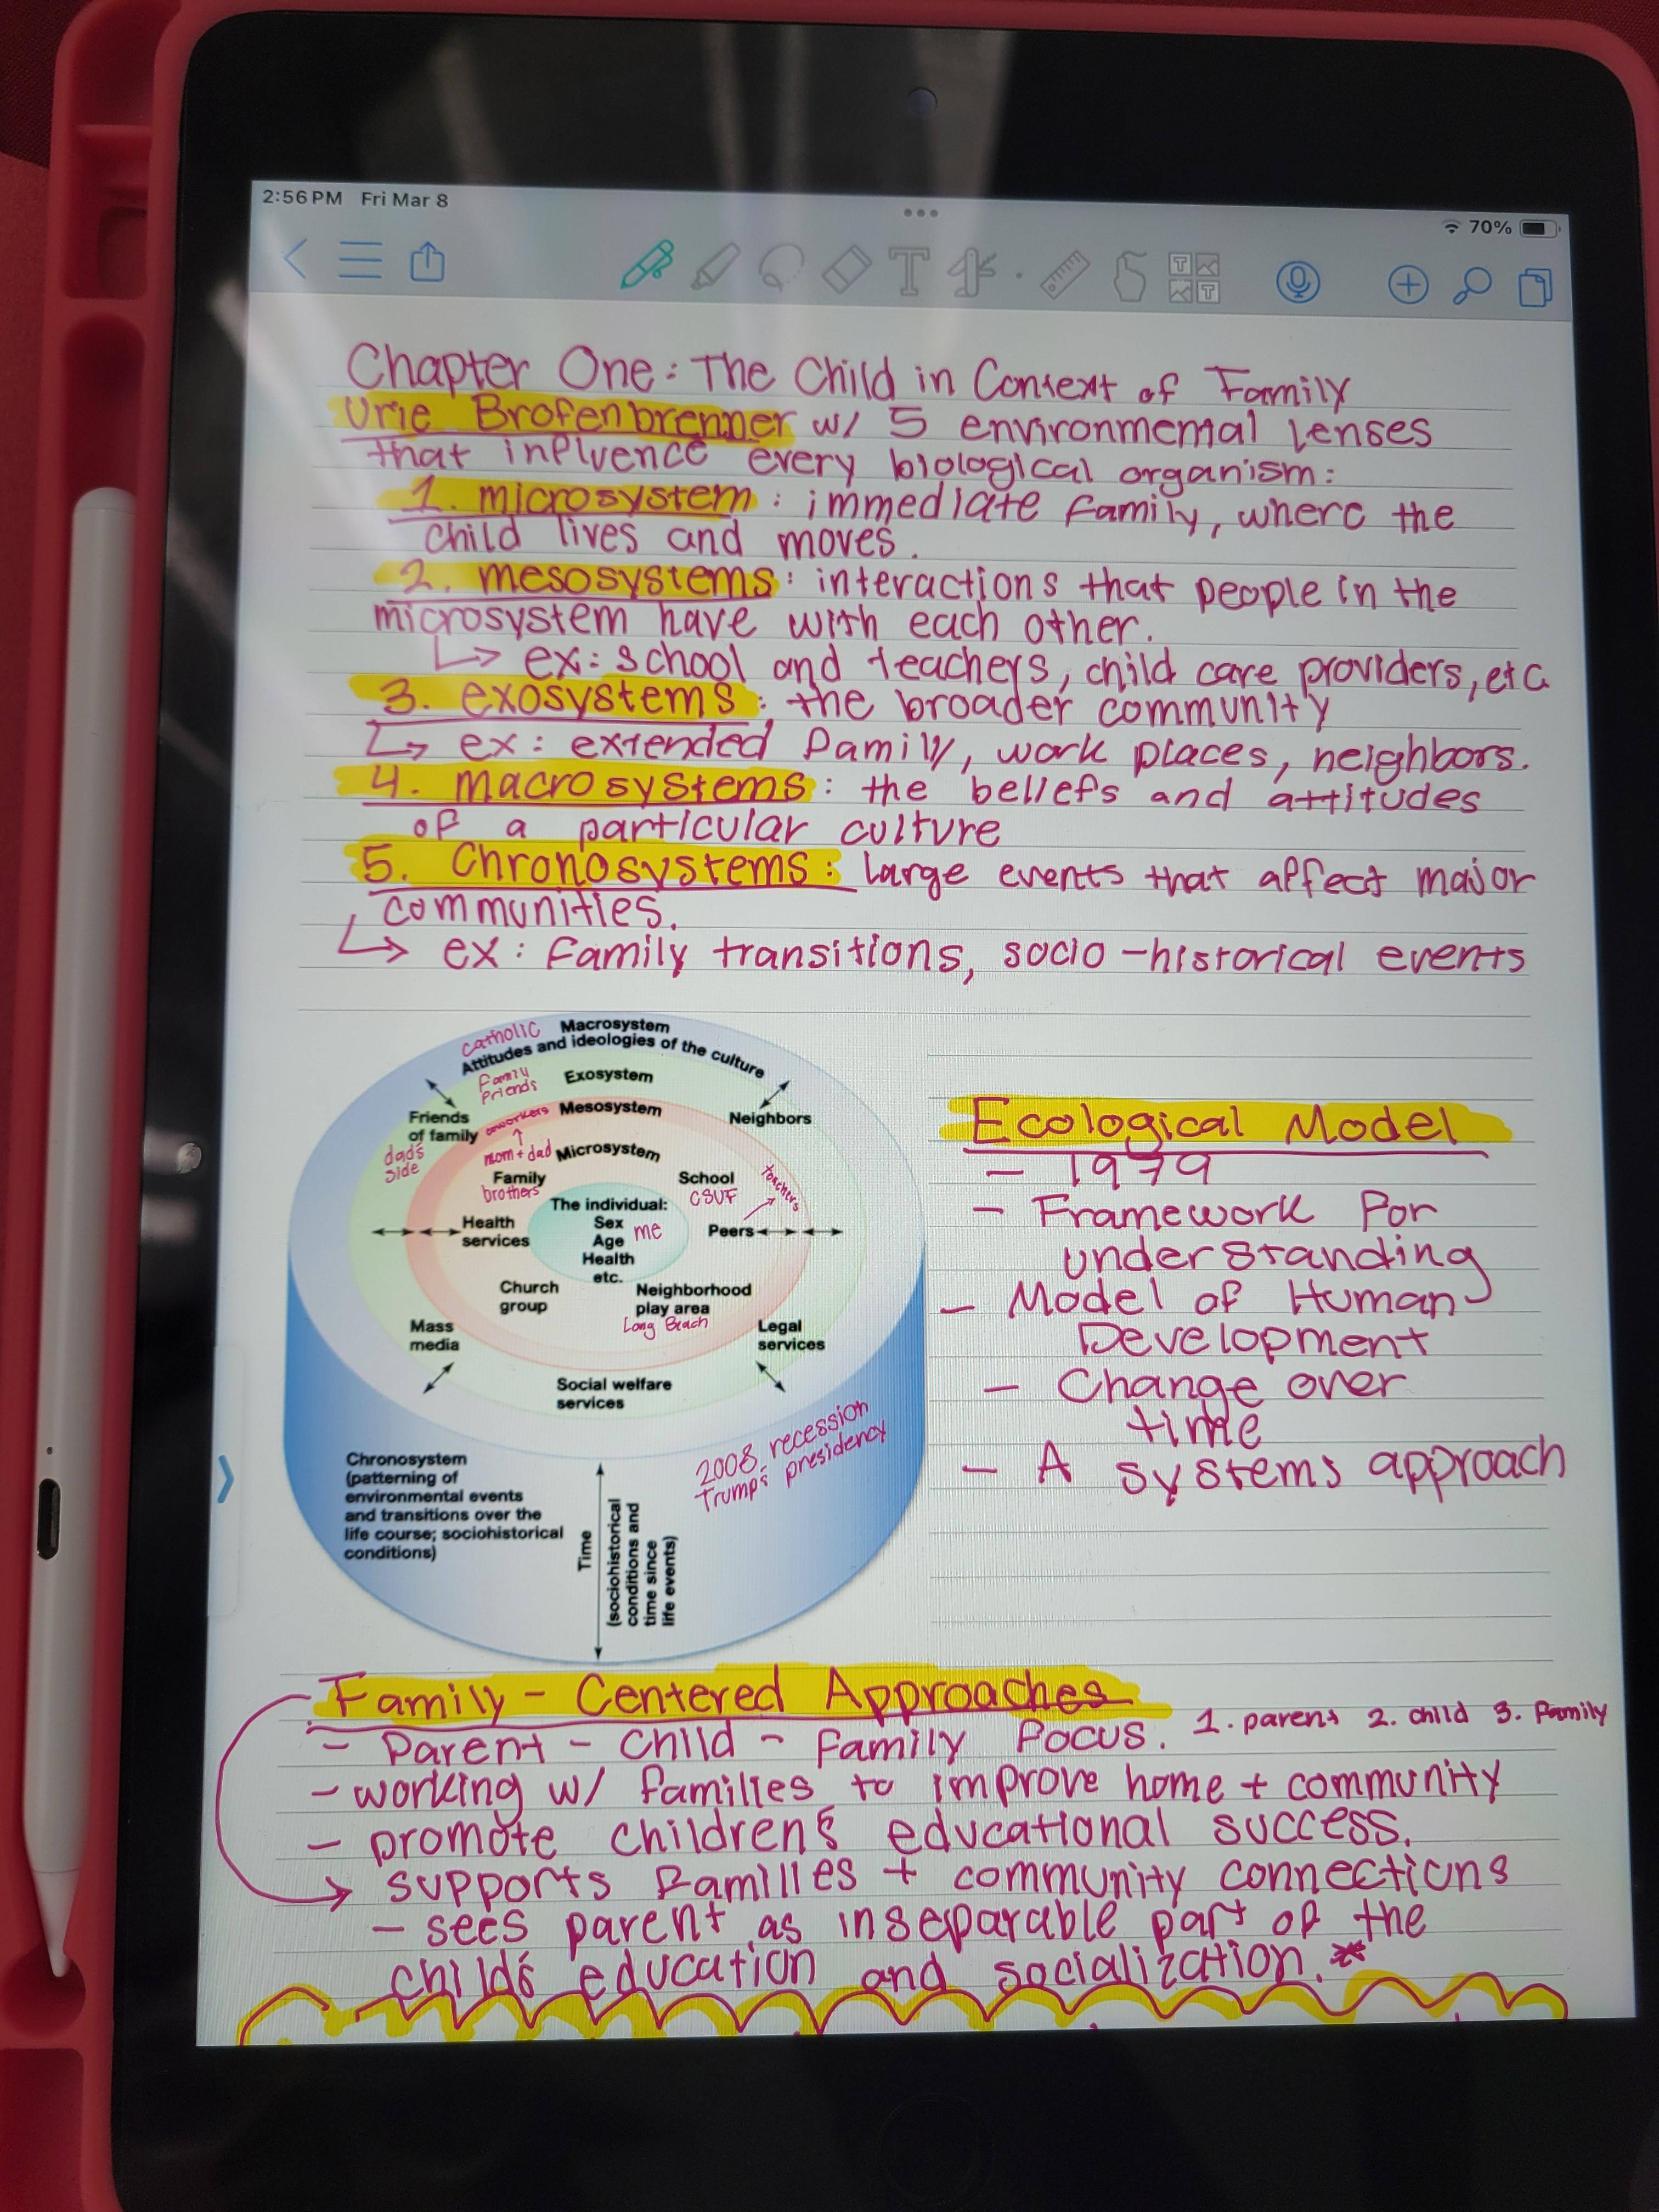 2:56 PM Fri Mar 8
70%
Chapter One: The Child in Context of Family
Urie Brofenbrenner w/ 5 environmental lenses
that influence every biological organism:
1. microsystem: immediate family, where the
child lives and moves.
2. mesosystems: interactions that people in the
microsystem have with each other.
↳ ex: school and teachers, child care providers, etc
3. exosystems: the broader community
↳ ex: extended family, work places, neighbors.
4. macrosystems: the beliefs and attitudes
of a particular culture
5. Chronosystems: large events that affect major
communities.
↳ ex: family transitions, socio-historical events
catholic Macrosystem
Attitudes and ideologies of the culture
Family
Friends
Exosystem
Friends
of family
dad's
side
coworkers
Mesosystem
Neighbors
mom + dad
Microsystem
Family
brothers
School
CSUF
teachers
The individual:
Sex
Age
Health
etc.
me
Health
services
Peers
Church
group
Neighborhood
play area
Long Beach
Mass
media
Legal
services
Social welfare
services
Chronosystem
(patterning of
environmental events
and transitions over the
life course; sociohistorical
conditions)
Time
(sociohistorical
conditions and
time since
life events)
2008 recession
Trump's presidency
Ecological Model
- 1979
- Framework for
understanding
- Model of Human
Development
- Change over
time
- A systems approach
Family-Centered Approaches
- Parent - child - family focus. 1. parent 2. child 3. family
- working w/ families to improve home + community
- promote children's educational success.
→ supports families + community connections
- sees parent as inseparable part of the
child's education and socialization.*